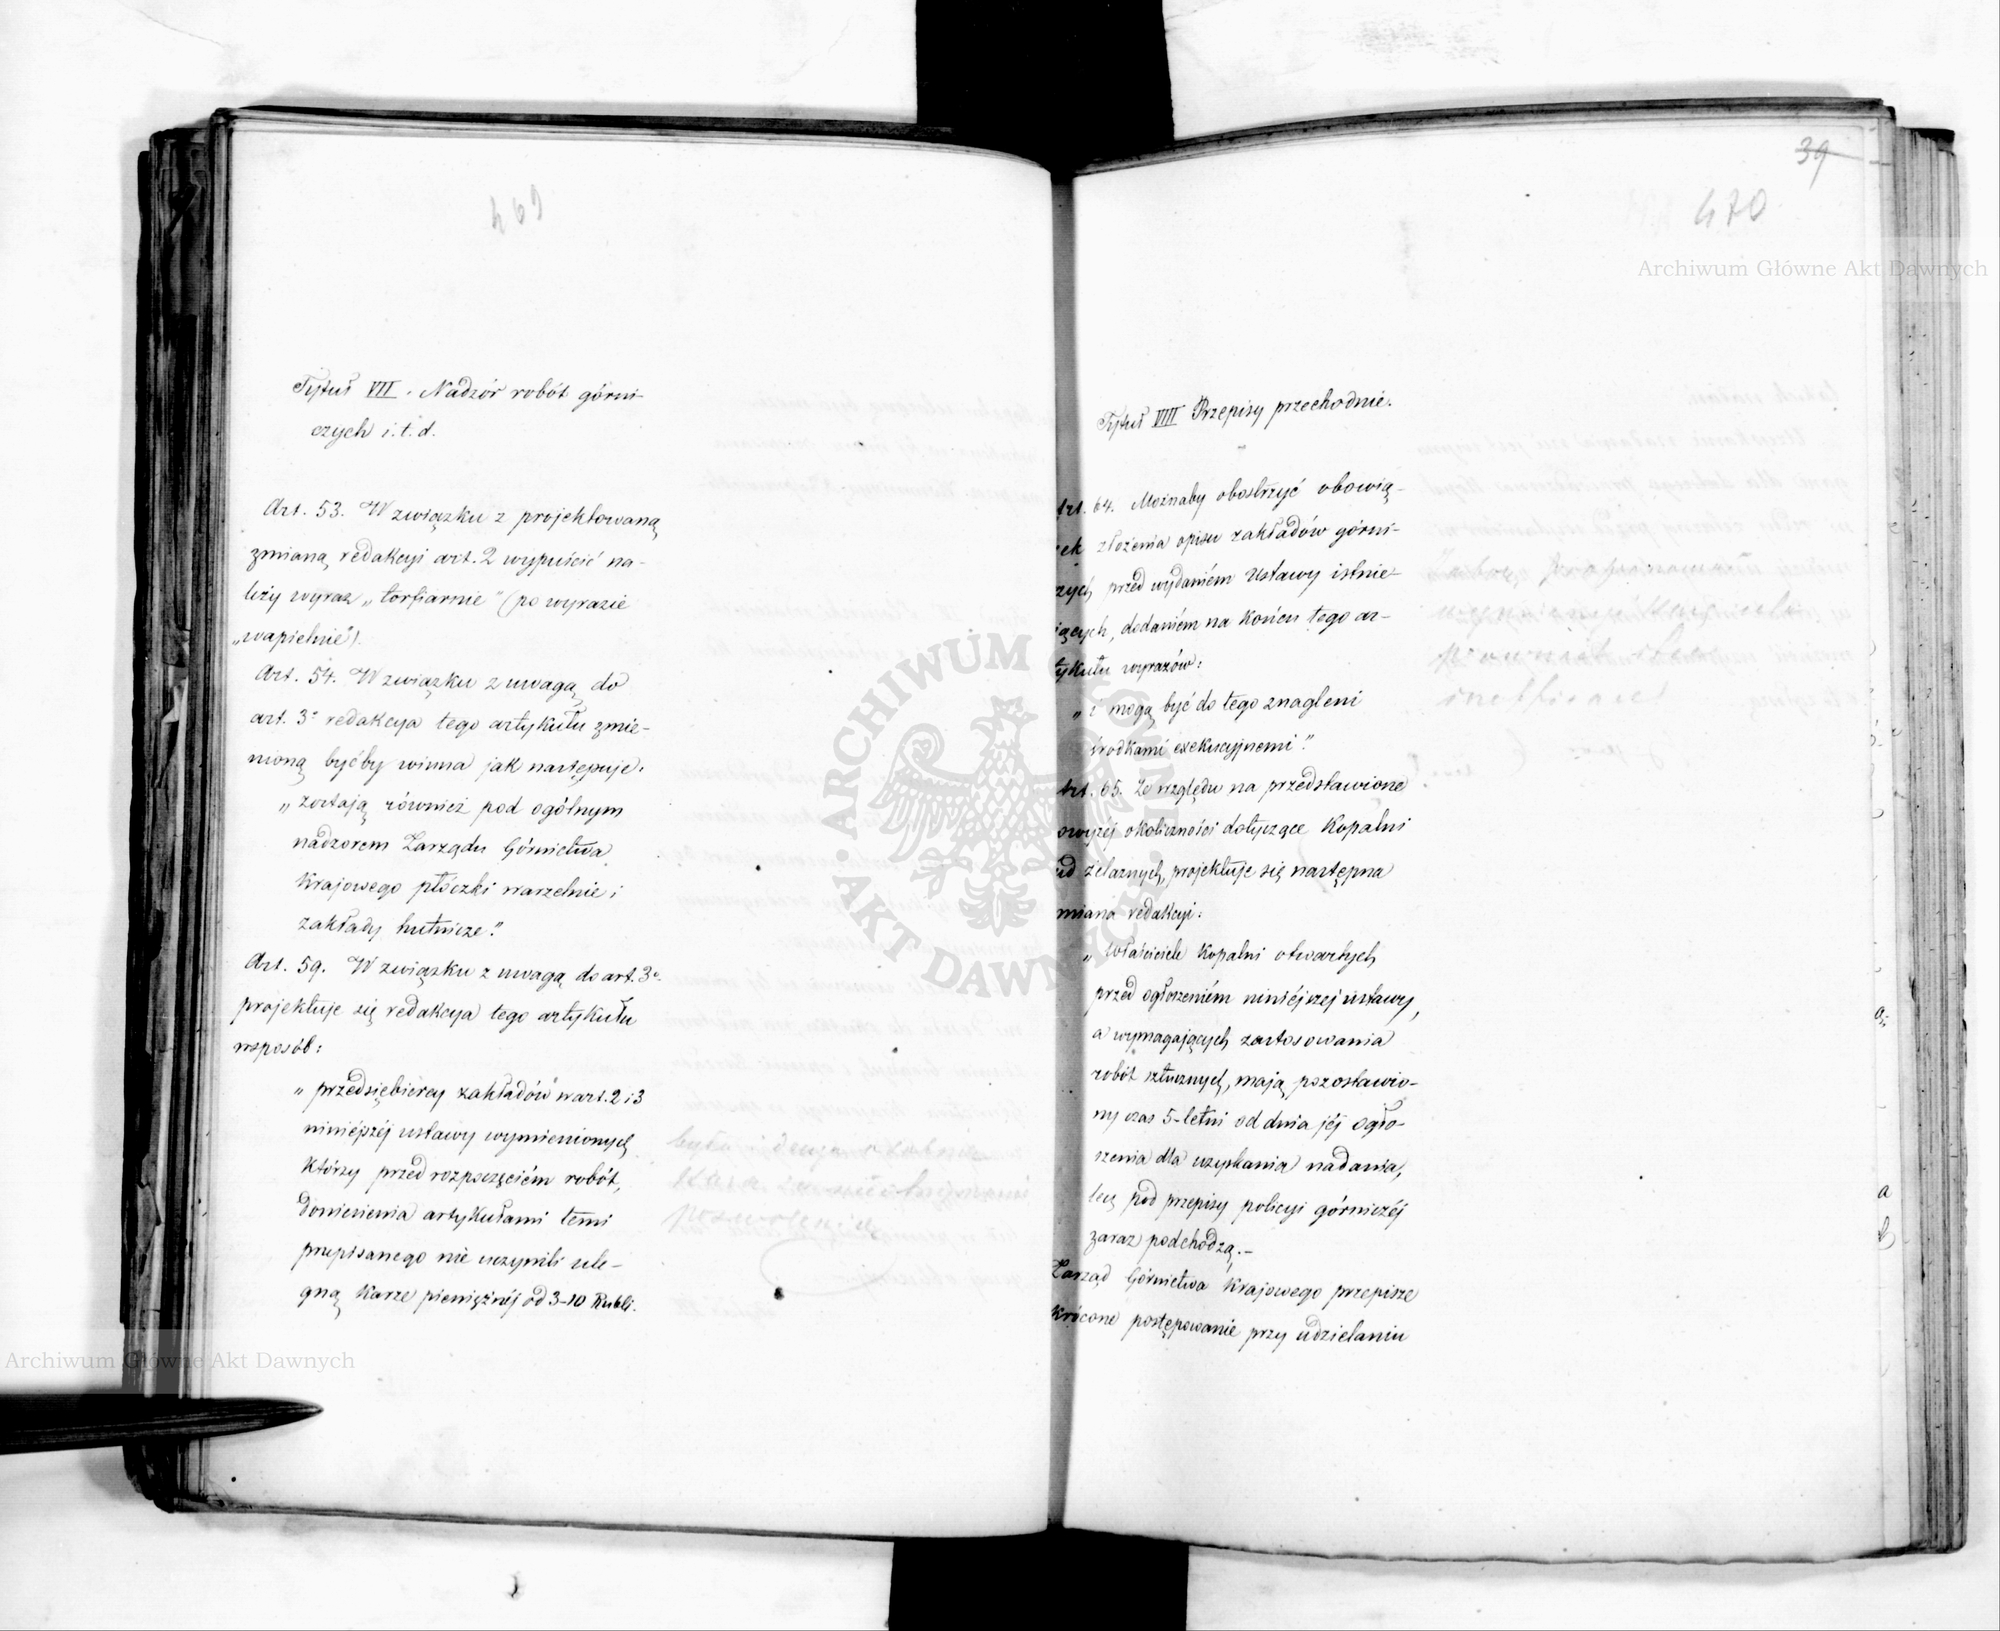 469
Tytuł VII. Nadzór robót górni-
czych i.t.d.
Art. 53. W związku z projektowaną
zmianą redakcyi art. 2 wypuścić na-
leży wyraz „torfiarnie" (po wyrazie
„wapielnie").
Art. 54. W związku z uwagą do
art. 3º redakcya tego artykułu zmie-
nioną byćby winna jak następuje:
„zostają również pod ogólnym
nadzorem Zarządu Górnictwa
Krajowego płóczki warzelnie i
zakłady hutnicze."
Art. 59. W związku z uwagą do art. 3º
projektuje się redakcya tego artykułu
w sposób:
„przedsiębiercy zakładów w art. 2 i 3
niniéjszéj ustawy wymienionych
którzy przed rozpoczęciém robót,
doniesienia artykułami temi
przepisanego nie uczynili ule-
gną karze pieniężnéj od 3-10 Rubli.
39
470
Tytuł VIII Przepisy przechodnie.
Art. 64. Możnaby obostrzyć obowią-
ek złożenia opisu zakładów górni-
zych przed wydaniém Ustawy istnie-
iących, dodaniém na końcu tego ar-
tykułu wyrazów:
„i mogą być do tego znagleni
środkami exekucyjnemi."
Art. 65. Ze względu na przedstawione
owyżéj okoliczności dotyczące kopalni
ud żelaznych, projektuje się następna
miana redakcyi:
„Właściciele kopalni otwartych
przed ogłoszeniém niniéjszej ustawy,
a wymagających zastosowania
robót sztucznych, mają pozostawio-
ny czas 5-letni od dnia jéj ogło-
szenia dla uzyskania nadania,
lecz pod przepisy policyi górniczéj
zaraz podchodzą.-
Zarząd Górnictwa Krajowego przepisze
krócone postępowanie przy udzielaniu
Archiwum Główne Akt Dawnych
ARCHIWUM GŁÓWNE AKT DAWNYCH
Archiwum Główne Akt Dawnych